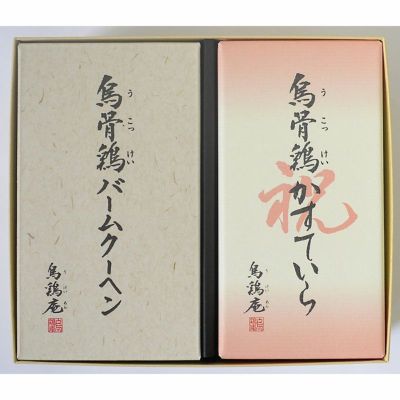 烏骨鶏かすていら
うこっけい
祝
烏鶏庵
うけいあん
烏骨鶏バームクーヘン
うこっけい
烏鶏庵
うけいあん